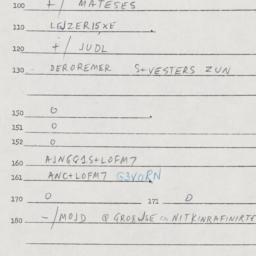 100 +/ MATESES
110 LEJZERISXE
120 +/ JUDL
130 DEROREMER S+VESTERS ZUN
150 0
151 0
152 0
160 A1NGG1S+LOFM7
161 ANC+LOFM7 G3VORN
170 0 171 0
180 -/MOJD @ GROEUSE NITKINRAFINIRTE